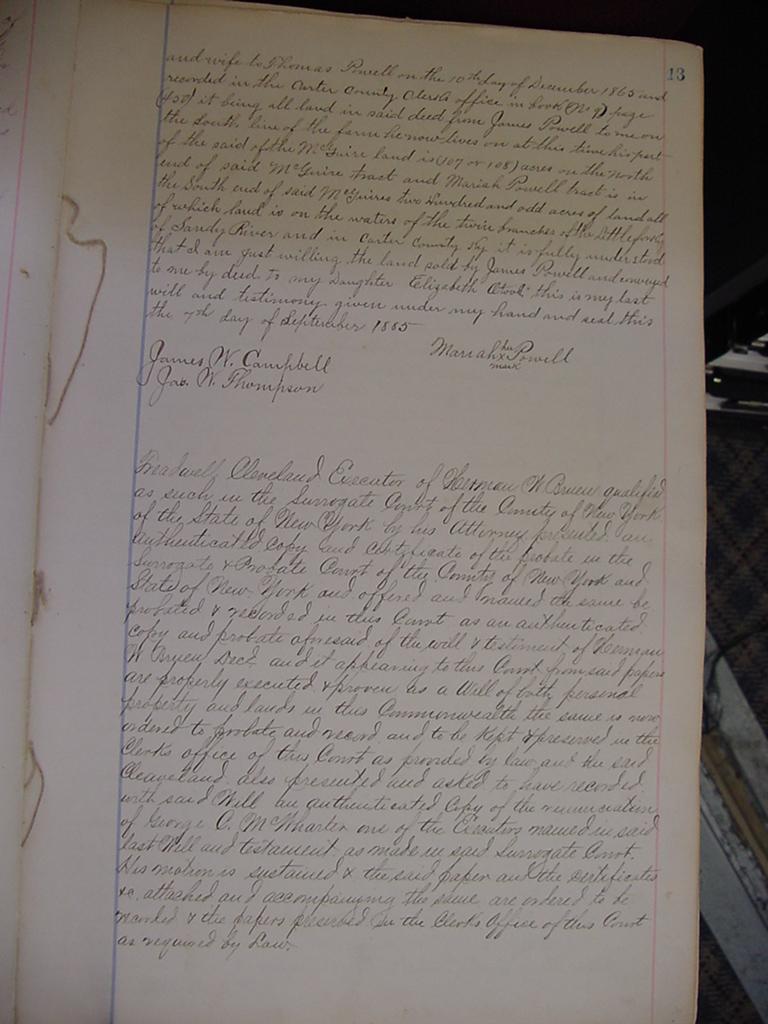 13
and wife to Thomas Powell on the 10th day of December 1865 and
recorded in the Carter County Clerks office in book (No 9) page
(450) it being all land in said deed from James Powell to me on
the South line of the farm he now lives on at this time his part
of the said of the McGuire land is (107 or 108) acres on the north
end of said McGuire tract and Mariah Powell tract is in
the South end of said McGuires two Hundred and odd acres of land all
of which land is on the waters of the twin branches of the little fork
of Sandy River and in Carter County Ky it is fully understood
that I am just willing the land sold by James Powell and conveyed
to me by deed to my Daughter Elizabeth this is my last
will and testimony given under my hand and seal this
the 7th day of September 1885
Mariah her x mark Powell
James W. Campbell
Jas. W. Thompson
Treadwell Cleveland Executor of Herman W Bruen qualified
as such in the Surrogate Court of the County of New York
of the State of New York by his Attorney presented an
authenticated copy and certificate of the probate in the
Surrogate & Probate Court of the County of New York and
State of New York and offered and moved the same be
probated & recorded in this Court as an authenticated
copy and probate aforesaid of the will & testiment of Herman
W Bruen Decd and it appearing to this Court from said papers
are properly executed & proven as a Will of both personal
property and lands in this Commonwealth the same is now
ordered to probate and record and to be kept & preserved in the
Clerks office of this Court as provided by law and the said
Cleaveland also presented and asked to have recorded
with said Will an authenticated Copy of the renunciation
of George C. McWharter one of the Executors named in said
last Will and testament as made in said Surrogate Court.
His motion is sustained & the said paper and the certificates
&c. attached and accompanying the same are ordered to be
recorded & the papers preserved in the Clerks Office of this Court
as required by Law.